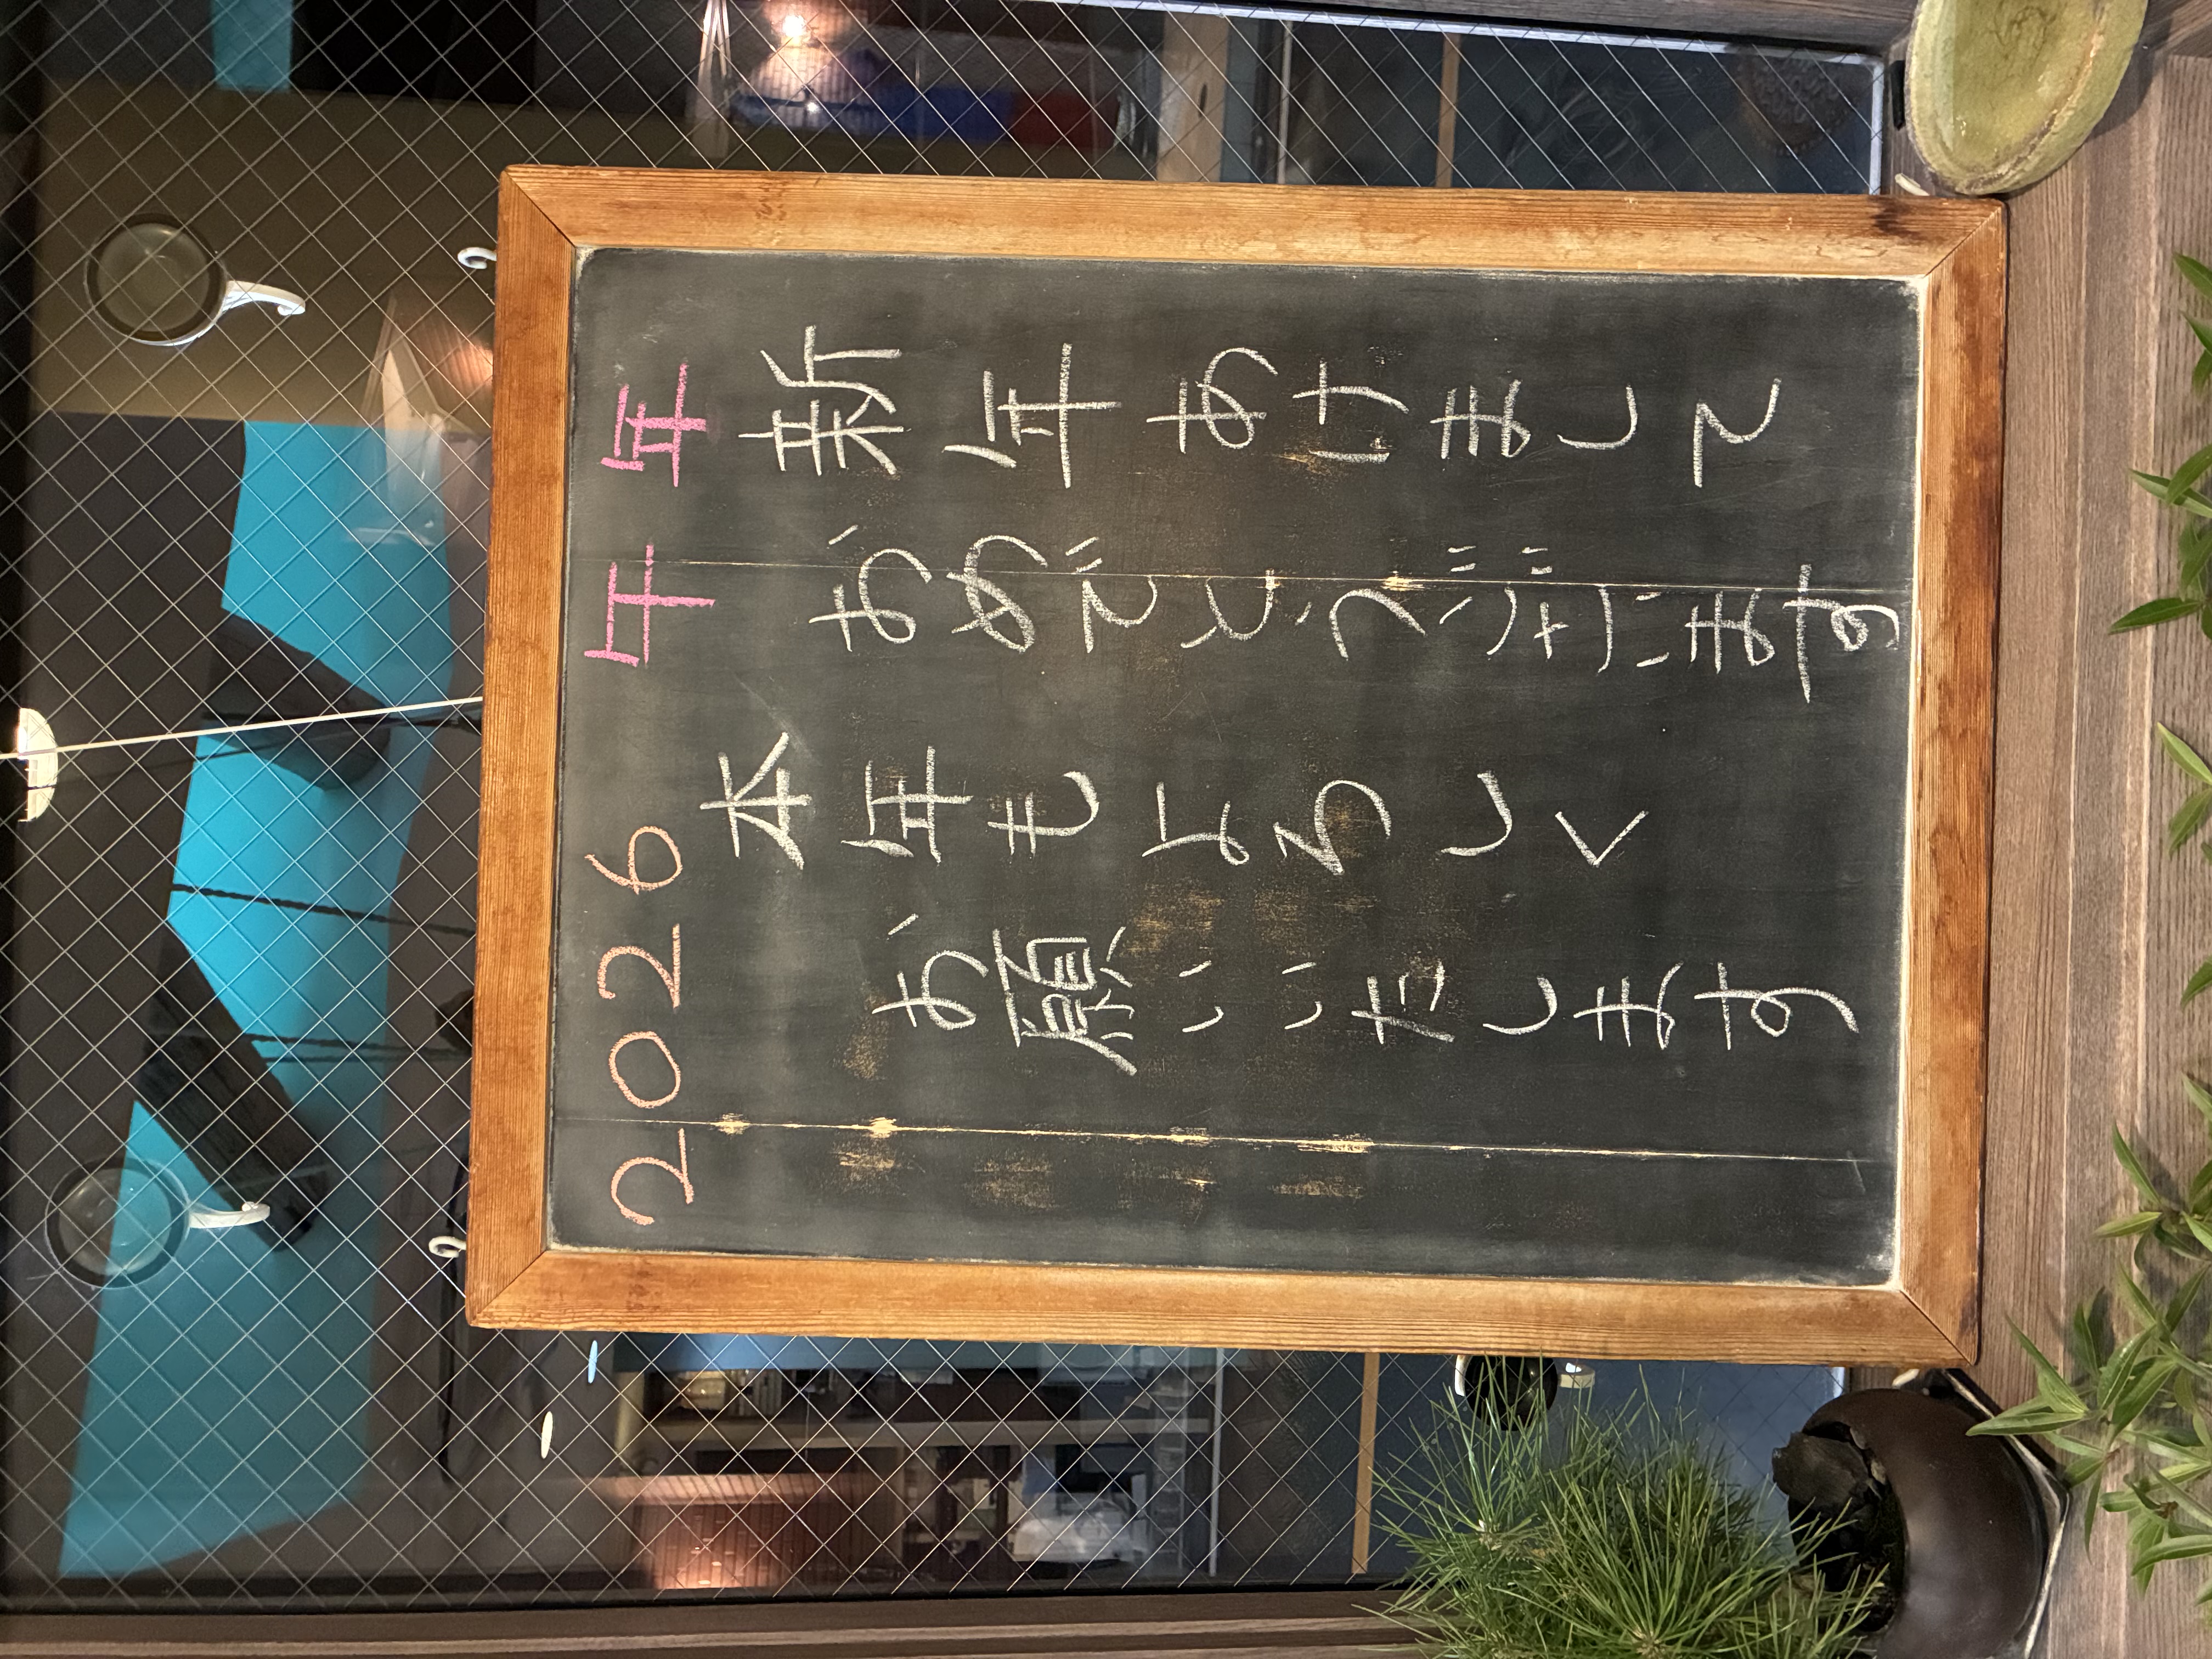 2026 午年
新年あけまして
おめでとうございます
本年もよろしく
お願いいたします